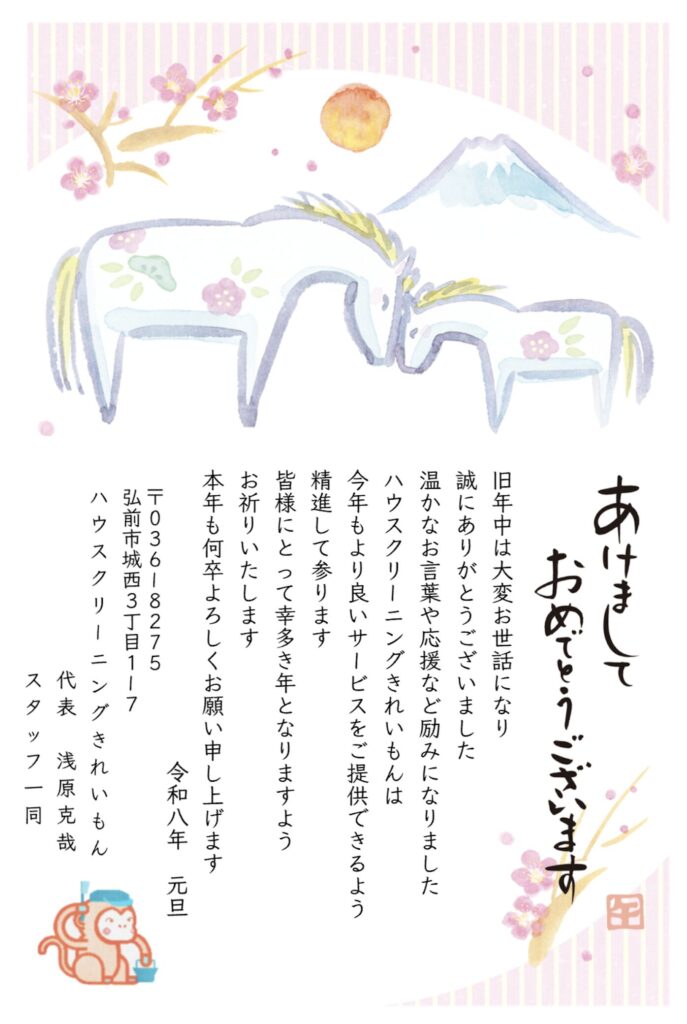 あけまして
おめでとうございます
旧年中は大変お世話になり
誠にありがとうございました
温かなお言葉や応援など励みになりました
ハウスクリーニングきれいもんは
今年もより良いサービスをご提供できるよう
精進して参ります
皆様にとって幸多き年となりますよう
お祈りいたします
本年も何卒よろしくお願い申し上げます
令和八年 元旦
〒036-8275
弘前市城西3丁目1-7
ハウスクリーニングきれいもん
代表 浅原克哉
スタッフ一同
午